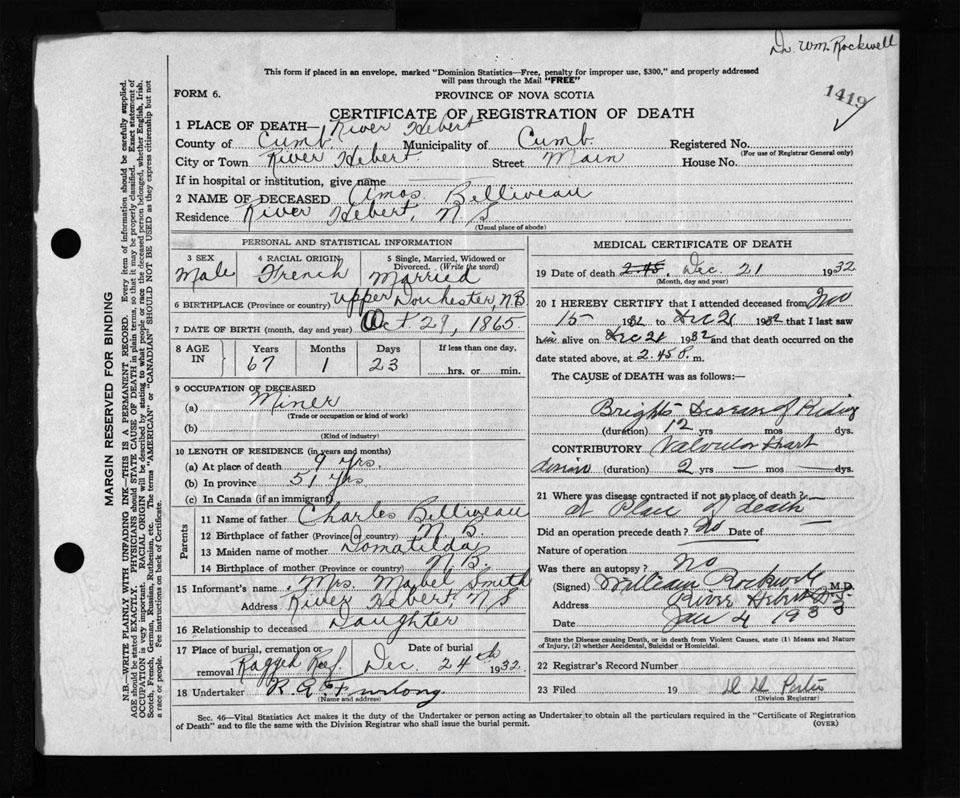 Dr. Wm. Rockwell
1419
This form if placed in an envelope, marked "Dominion Statistics—Free, penalty for improper use, $300," and properly addressed
will pass through the Mail "FREE"
FORM 6.
PROVINCE OF NOVA SCOTIA
CERTIFICATE OF REGISTRATION OF DEATH
1 PLACE OF DEATH— River Hebert
County of Cumb. Municipality of Cumb. Registered No.
(For use of Registrar General only)
City or Town River Hebert Street Main House No.
If in hospital or institution, give name
2 NAME OF DECEASED Amos Belliveau
Residence River Hebert, N S
(Usual place of abode)
PERSONAL AND STATISTICAL INFORMATION
3 SEX Male
4 RACIAL ORIGIN French
5 Single, Married, Widowed or Divorced. (Write the word) Married
6 BIRTHPLACE (Province or country) Upper Dorchester N.B.
7 DATE OF BIRTH (month, day and year) Oct 29, 1865
8 AGE IN
Years 67
Months 1
Days 23
If less than one day,
hrs. or min.
9 OCCUPATION OF DECEASED
(a) Miner
(Trade or occupation or kind of work)
(b)
(Kind of industry)
10 LENGTH OF RESIDENCE (in years and months)
(a) At place of death 9 yrs.
(b) In province 51 yrs.
(c) In Canada (if an immigrant)
Parents
11 Name of father Charles Belliveau
12 Birthplace of father (Province or country) N B.
13 Maiden name of mother Domatilda
14 Birthplace of mother (Province or country) N.B.
15 Informant's name Mrs. Maybel Smith
Address River Hebert, N S
16 Relationship to deceased Daughter
17 Place of burial, cremation or removal Ragged Reef. Date of burial Dec. 24th 1932
18 Undertaker R. G. Furlong.
(Name and address)
MEDICAL CERTIFICATE OF DEATH
19 Date of death 2.45 Dec. 21 1932
(Month, day and year)
20 I HEREBY CERTIFY that I attended deceased from Nov
15 1932 to Dec 21 1932 that I last saw
him alive on Dec 21 1932 and that death occurred on the
date stated above, at 2.45 P. m.
The CAUSE of DEATH was as follows:—
Brights Disease of Kidney
(duration) 12 yrs mos dys.
CONTRIBUTORY Valvular Heart
disease (duration) 2 yrs — mos — dys.
21 Where was disease contracted if not at place of death?
at Place of death
Did an operation precede death? No Date of
Nature of operation
Was there an autopsy? No
(Signed) William Rockwell M.D.
Address River Hebert N.S.
Date Jan 4 1933
State the Disease causing Death, or in death from Violent Causes, state (1) Means and Nature
of Injury, (2) whether Accidental, Suicidal or Homicidal.
22 Registrar's Record Number
23 Filed 19
(Division Registrar)
Sec. 46—Vital Statistics Act makes it the duty of the Undertaker or person acting as Undertaker to obtain all the particulars required in the "Certificate of Registration
of Death" and to file the same with the Division Registrar who shall issue the burial permit.
(OVER)
MARGIN RESERVED FOR BINDING
N.B.—WRITE PLAINLY WITH UNFADING INK—THIS IS A PERMANENT RECORD. Every item of information should be carefully supplied.
AGE should be stated EXACTLY. PHYSICIANS should STATE CAUSE OF DEATH in plain terms, so that it may be properly classified. Exact statement of
OCCUPATION is very important. RACIAL ORIGIN will be described by stating to what people or race the deceased person belonged, whether English, Irish,
Scotch, French, German, Russian, Ruthenian, etc. The terms "AMERICAN" or "CANADIAN" SHOULD NOT BE USED as they express citizenship but not
a race or people. Fee instructions on back of Certificate.